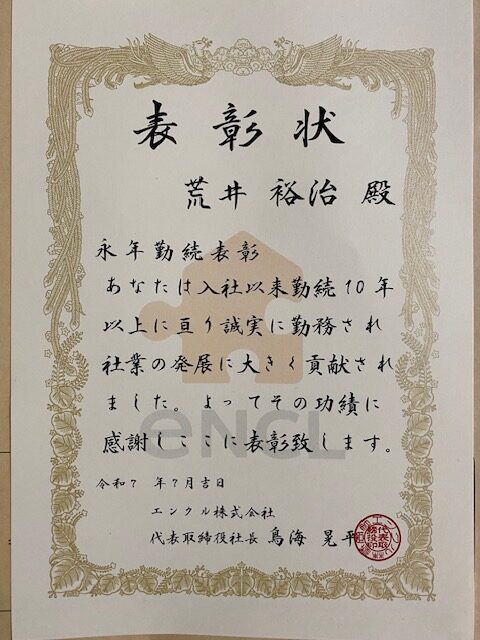 表彰状
荒井 裕治 殿
永年勤続表彰
あなたは入社以来勤続10年
以上に亘り誠実に勤務され
社業の発展に大きく貢献され
ました。よってその功績に
感謝しここに表彰致します。
eNCL
令和7 年7月吉日
エンクル株式会社
代表取締役社長 鳥海 晃平